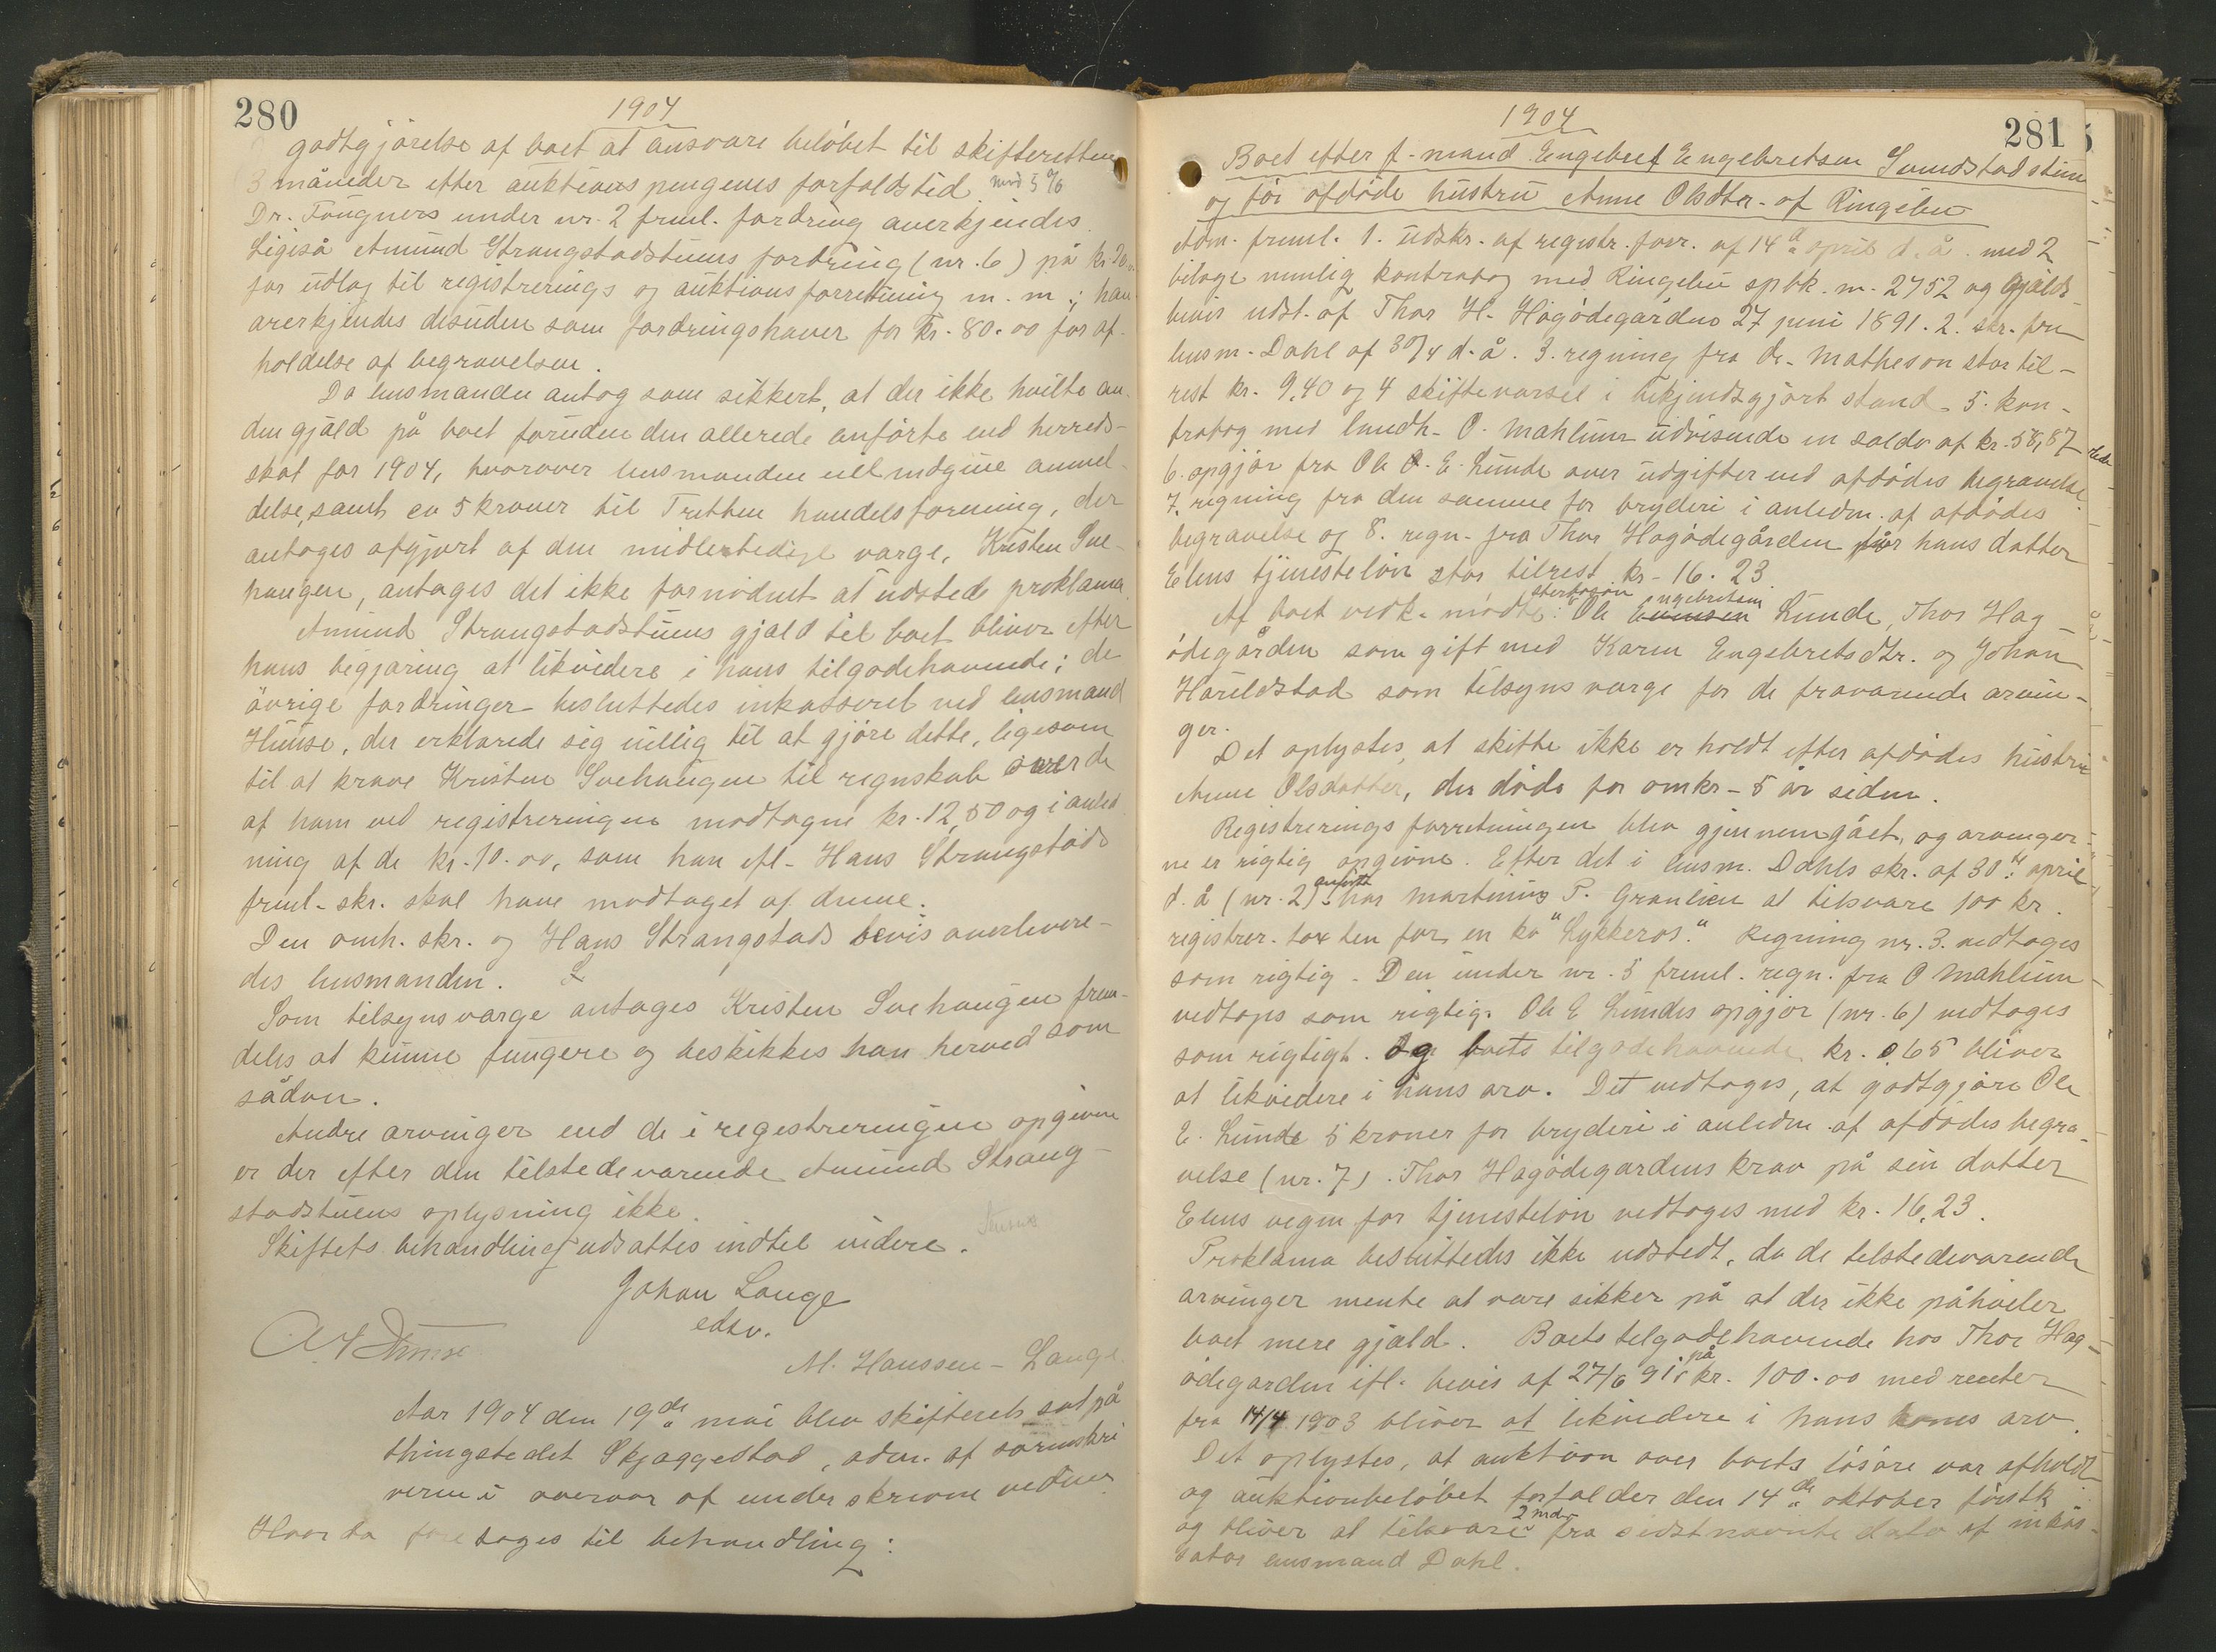 280
1904
godtgjörelse af boet at ansvare belöbet til skifteretten
3 måneder efter auktionspengenes forfaldstid mod 5 %
Dr. Tougners under nr. 2 freml. fordring anerkjendes.
Ligeså Amund Strangstadstuens fordring (nr. 6) på kr.
for udlæg til registrerings og auktionsforretning m. m.; han
anerkjendes desuden som fordringshaver for kr. 80.00 for af-
holdelse af begravelsen.
Da lensmanden antog som sikkert, at der ikke hvilte an-
den gjæld på boet foruden den allerede anförte end herreds-
skat for 1904, hvorover lensmanden vil indgive anmel-
delse, samt ca 5 kroner til Tretten handelsforening, der
antages afgjort af den midlertidige værge, Kristen Sve-
haugen, antages det ikke fornödent at udstede proklama.
Amund Strangstadstuens gjæld til boet bliver efter
hans begjæring at likvidere i hans tilgodehavende; de
övrige fordringer besluttedes inkasseret ved lensmand
Hunse, der erklærede sig villig til at gjöre dette, ligesom
til at kræve Kristen Svehaugen til regnskab over de
af ham ved registreringen modtagne kr. 12,50 og i anled-
ning af de kr. 10.00, som han efl. Hans Strangstads
freml. skr. skal have modtaget af denne.
Den omh. skr. og Hans Strangstads bevis overlevere-
des lensmanden.
Som tilsynsværge antages Kristen Svehaugen frem-
deles at kunne fungere og beskikkes han herved som
sådan.
Andre arvinger end de i registreringen opgivne
er der efter den tilstedeværende Amund Strang-
stadstuens oplysning ikke.
Skiftets behandling udsattes indtil videre.
Johan Lange
edsv.
M. Hanssen-Lange.
Aar 1904 den 19de mai blev skifteret sat på
thingstedet Skjæggestad, adm. af sorenskri
veren i overvær af underskrevne vidner.
Hvor da foretages til behandling:
281
1904
Boet efter f-mand Engebret Engebretsen Sundstadstuen
og för afdöde hustru Anne Olsdtr. af Ringebu
Adm. freml. 1. udskr. af registr. forr. af 14de april d. å. med 2
bilage nemlig kontrabog med Ringebu spbk. nr. 2752 og gjælds-
bevis udst. af Thor H. Hagödegården 27 juni 1891. 2. skr. fra
lensm. Dahl af 30/4 d. å. 3. regning fra dr. Matheson stor til-
rest kr. 9,40 og 4 skiftevarsel i bekjendtgjort stand. 5. kon-
trabog med landh. O. Mahlum udvisende en saldo af kr. 58,87
6. opgjör fra Ole E. Lunde over udgifter ved afdödes begravelse.
7. regning fra den samme for bryderi i anledn. af afdödes
begravelse og 8. regn. fra Thor Hagödegården for hans datter
Elens tjenestelön stor tilrest kr. 16.23.
Af boet vedk. mödte: Ole Engebretsen Lunde, Thor Hag-
ödegården som gift med Karen Engebretsdtr. og Johan
Harildstad som tilsynsværge for de fraværende arvin-
ger.
Det oplystes, at skifte ikke er holdt efter afdödes hustru
Anne Olsdatter, der döde for omkr. 5 år siden.
Registreringsforretningen blev gjennemgået, og arvinger-
ne er rigtig opgivne. Efter det i lensm. Dahls skr. af 30te april
d. å (nr. 2) anförte har Martinus P. Granlien at tilsvare 100 kr.
registrer. taxten for en ko "Lykkeros." Regning nr. 3. vedtages
som rigtig. Den under nr. 5 freml. regn. fra O Mahlum
vedtages som rigtig. Ole E Lundes opgjör (nr. 6) vedtages
som rigtigt. Og boets tilgodehavende kr. 0 65 bliver
at likvidere i hans arv. Det vedtages, at godtgjöre Ole
E. Lunde 5 kroner for bryderi i anledn. af afdödes begra-
velse (nr. 7). Thor Hagödegårdens krav på sin datter
Elens vegne for tjenestelön vedtages med kr. 16,23.
Proklama besluttedes ikke udstedt, da de tilstedeværende
arvinger mente at være sikker på at der ikke påhviler
boet mere gjæld. Boets tilgodehavende hos Thor Hag-
ödegarden ifl. bevis af 27/6 91 på kr. 100.00 med renter
fra 14/4 1903 bliver at likvidere i hans kones arv.
Det oplystes, at auktion over boets lösöre var afholdt
og auktionbelöbet forfalder den 14de oktober förstk.
og bliver at tilsvare 2 mdr. fra sidstnævnte dato af inkas-
sator lensmand Dahl.